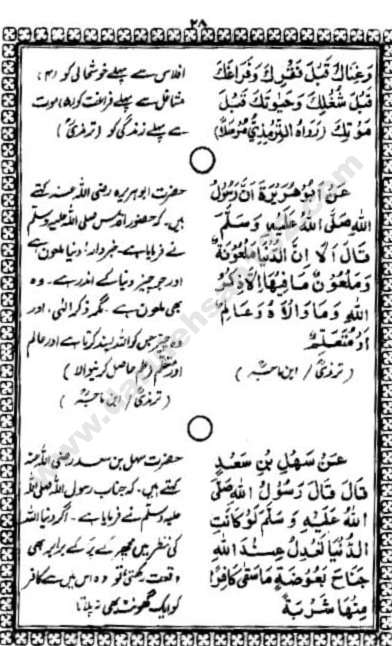 ۲۸
وَغِنَاكَ قَبْلَ فَقْرِكَ وَفَرَاغَكَ
قَبْلَ شُغْلِكَ وَحَيٰوتَكَ قَبْلَ
مَوْتِكَ (رَوَاهُ التِّرْمِذِيُّ مُرْسَلًا)
افلاس سے پہلے خوشحالی کو (۴)
مشاغل سے پہلے فراغت کو (۵) موت
سے پہلے زندگی کو (ترمذیؒ)
عَنْ اَبِيْ هُرَيْرَةَ اَنَّ رَسُوْلَ
اللهِ صَلَّى اللهُ عَلَيْهِ وَسَلَّمَ
قَالَ اَلَا اِنَّ الدُّنْيَا مَلْعُوْنَةٌ
وَمَلْعُوْنٌ مَا فِيْهَا اِلَّا ذِكْرُ
اللهِ وَمَا وَالَاهُ وَعَالِمٌ
اَوْ مُتَعَلِّمٌ
(ترمذیؒ / ابن ماجہؒ)
حضرت ابو ہریرہ رضی اللہ عنہ کہتے
ہیں۔ کہ حضور اقدس صلی اللہ علیہ وسلم
نے فرمایا ہے۔ خبردار! دنیا ملعون ہے
اور جو چیز دنیا کے اندر ہے۔ وہ
بھی ملعون ہے۔ مگر ذکر الٰہی، اور
وہ چیز جس کو اللہ پسند کرتا ہے اور عالم
اور متعلم (علم حاصل کرنیوالا)
(ترمذیؒ / ابن ماجہؒ)
عَنْ سَهْلِ بْنِ سَعْدٍ
قَالَ قَالَ رَسُوْلُ اللهِ صَلَّى
اللهُ عَلَيْهِ وَسَلَّمَ لَوْ كَانَتِ
الدُّنْيَا تَعْدِلُ عِنْدَ اللهِ
جَنَاحَ بَعُوْضَةٍ مَا سَقٰى كَافِرًا
مِنْهَا شَرْبَةً
حضرت سہل بن سعد رضی اللہ عنہ
کہتے ہیں۔ کہ جناب رسول اللہ صلی اللہ
علیہ وسلم نے فرمایا ہے۔ اگر دنیا اللہ
کی نظر میں مچھر کے پر کے برابر بھی
وقعت رکھتی تو وہ اس میں سے کافر
کو ایک گھونٹ بھی نہ پلاتا